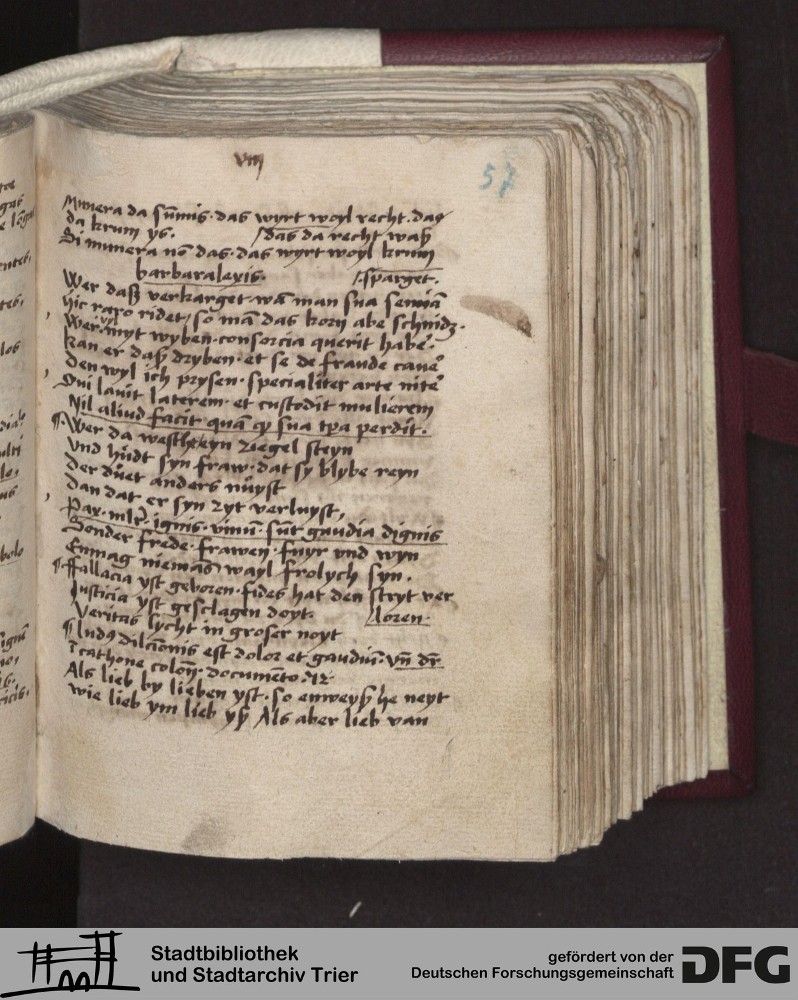 viij
57
Munera da sūmis · das wyrt woyl recht · day
da krum ys · /das da recht waß
Si munera nō das · das wyrt woyl krum
barbaralexis · /sparget ·
Wer daß verkarget · wā man sua semiā
hic raro ridet / so mā das korn abe schnidz ·
Wer vil myt wyben · consorcia querit habē ·
kan er daß dryben · et se de fraude cauē
Den wyl ich prysen · specialiter arte nitē
Qui lauit laterem · et custodit mulierem
Nil aliud facit quā qz sua tpa perdit ·
¶ Wer da weschet eyn ziegel steyn
Vnd hůdt syn fraw · dat sy blybe reyn
Der důet anders nuyst
Dan dat er syn zyt verluyst,
Pax · mlr̄ · ignis · vinū · sūt gaudia dignis
Sonder frede · frawen · fuyr vnd wyn
Enmag niemās wayl frolych syn ·
¶ Fallacia yst geboren · fides hat den stryt ver
Justicia yst gesclagen doyt · /loren ·
Veritas lycht in groser noyt
¶ ludꝰ dilcīonis est dolor et gaudiū · vn̄ dr̄
ī cathone colon̄ · documēto ·
Als lieb by lieben yst · so enweyß he neyt
wie lieb ym lieb yß Als aber lieb van
Stadtbibliothek
und Stadtarchiv Trier
gefördert von der
Deutschen Forschungsgemeinschaft
DFG